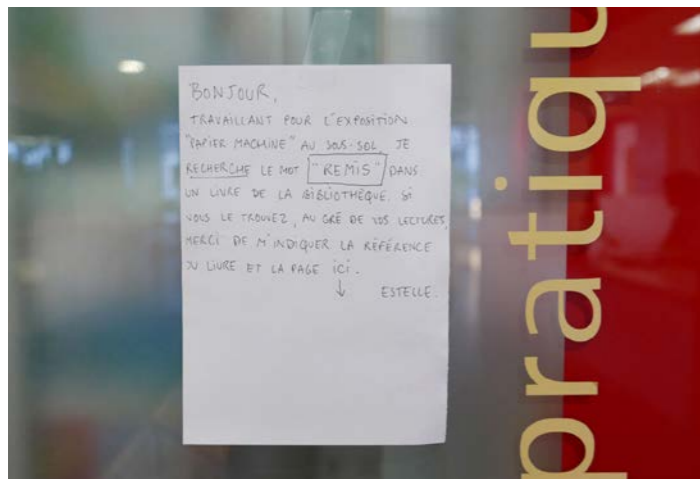 BONJOUR,
TRAVAILLANT POUR L'EXPOSITION
"PAPIER MACHINE" AU SOUS-SOL, JE
RECHERCHE LE MOT "REMIS" DANS
UN LIVRE DE LA BIBLIOTHÈQUE. SI
VOUS LE TROUVEZ, AU GRÉ DE VOS LECTURES,
MERCI DE M'INDIQUER LA RÉFÉRENCE
DU LIVRE ET LA PAGE ICI.
↓ ESTELLE.
pratiqu